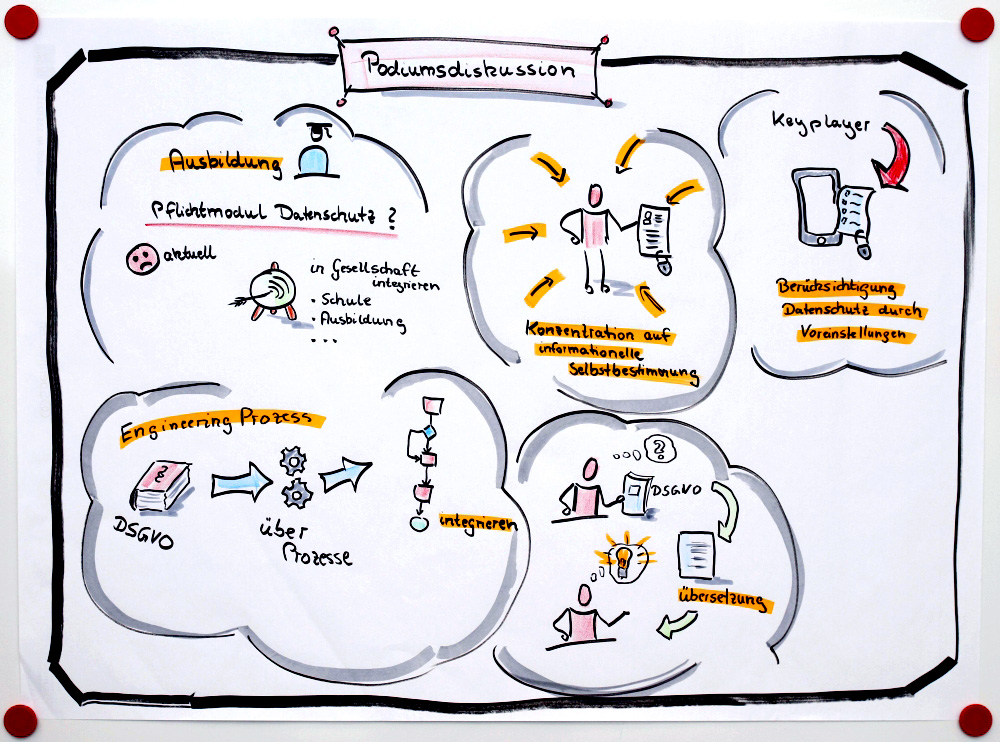 Podiumsdiskussion
Ausbildung
Pflichtmodul Datenschutz ?
aktuell
in Gesellschaft
integrieren
• Schule
• Ausbildung
• . . .
Konzentration auf
informationelle
Selbstbestimmung
Keyplayer
Berücksichtigung
Datenschutz durch
Voreinstellungen
Engineering Prozess
§
DSGVO
über
Prozesse
integrieren
?
DSGVO
übersetzung